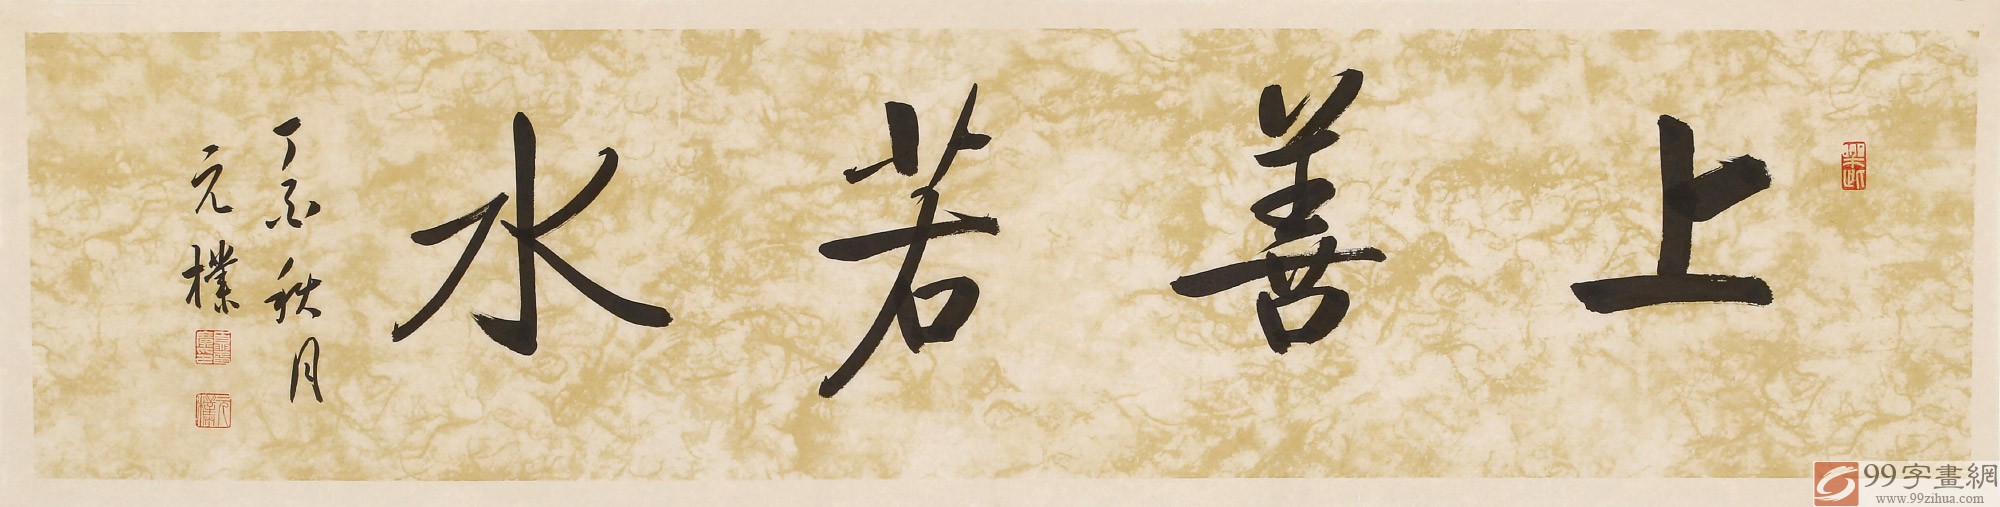 上善若水
丁酉秋月
元樸
元樸
99字畫網
www.99zihua.com